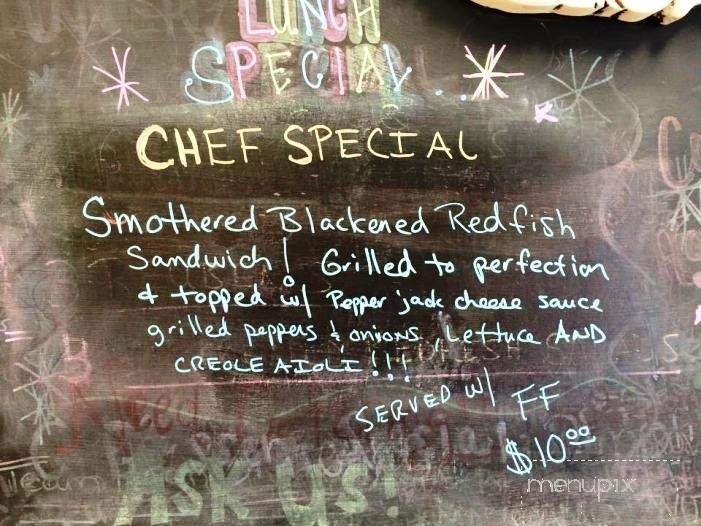 LUNCH
SPECIAL...
CHEF SPECIAL
Smothered Blackened Redfish
Sandwich! Grilled to perfection
& topped w/ Pepper jack cheese sauce
grilled peppers & onions, Lettuce AND
CREOLE AIOLI!!!
SERVED W/ FF
$10.00
ASK US!
menupix